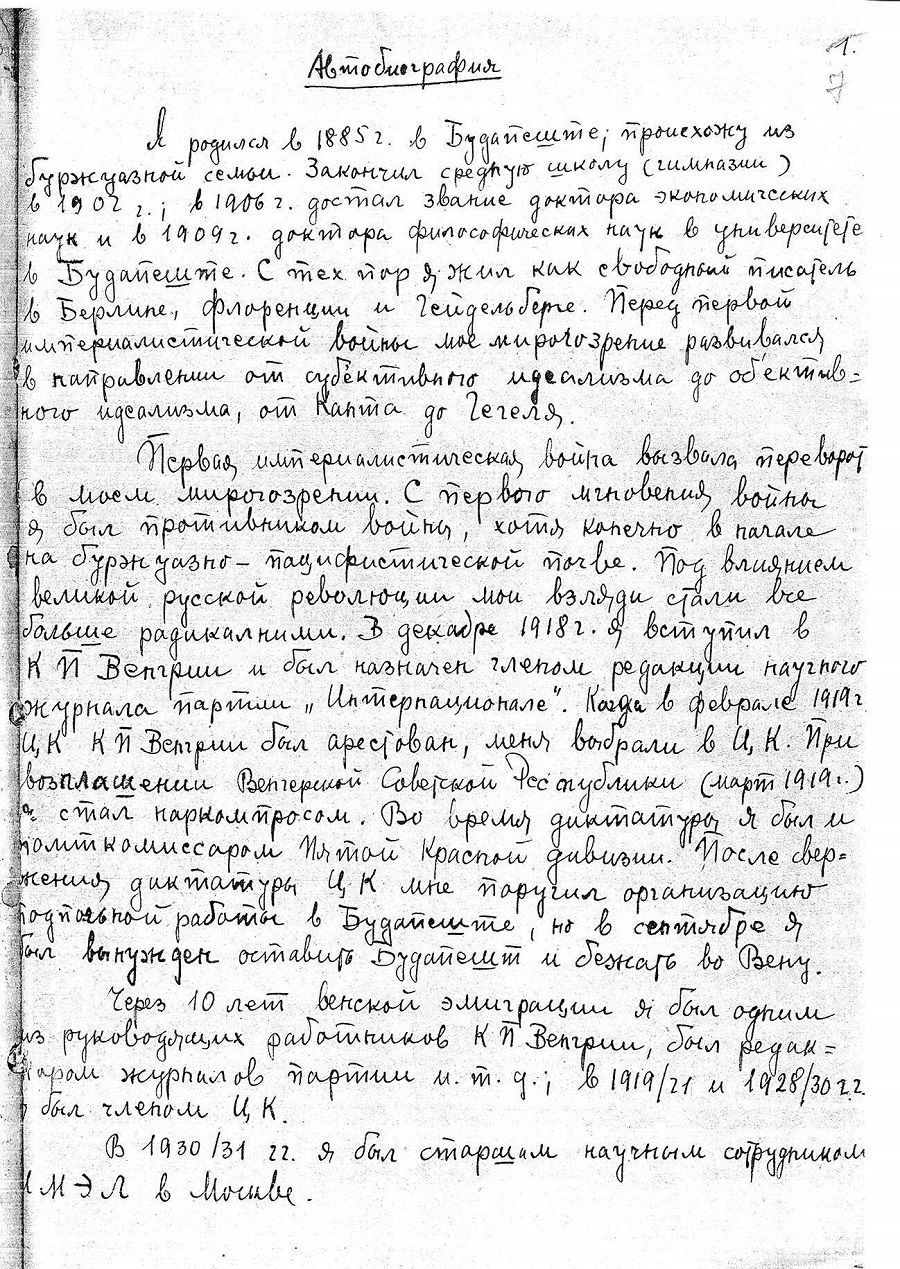 1.
7
Автобиография
Я родился в 1885 г. в Будапеште; происхожу из
буржуазной семьи. Закончил средную школу (гимназии)
в 1902 г.; в 1906 г. достал звание доктора экономических
наук и в 1909 г. доктора философических наук в университете
в Будапеште. С тех пор я жил как свободный писатель
в Берлине, Флоренции и Гейдельберге. Перед первой
империалистической войны мое мировоззрение развивался
в направлении от субъективного идеализма до объектив=
ного идеализма, от Канта до Гегеля.
Первая империалистическая война вызвала переворот
в моем мировоззрении. С первого мгновения войны
я был противником войны, хотя конечно в начале
на буржуазно-пацифистической почве. Под влиянием
великой русской революции мои взгляди стали все
больше радикалними. В декабре 1918 г. я вступил в
КП Венгрии и был назначен членом редакции научного
журнала партии „Интернационале". Когда в феврале 1919 г
ЦК КП Венгрии был арестован, меня выбрали в ЦК. При
возплашении Венгерской Советской Республики (март 1919 г.)
я стал наркомпросом. Во время диктатуры я был и
политкомиссаром Пятой Красной дивизии. После свер=
жения диктатуры ЦК мне поручил организацию
подпольной работы в Будапеште, но в сентябре я
был вынужден оставить Будапешт и бежать во Вену.
Через 10 лет венской эмиграции я был одним
из руководящих работников КП Венгрии, был редак=
тором журналов партии и. т. д.; в 1919/21 и 1928/30 г.г.
я был членом ЦК.
В 1930/31 гг. я был старшим научным сотрудником
ИМЭЛ в Москве.